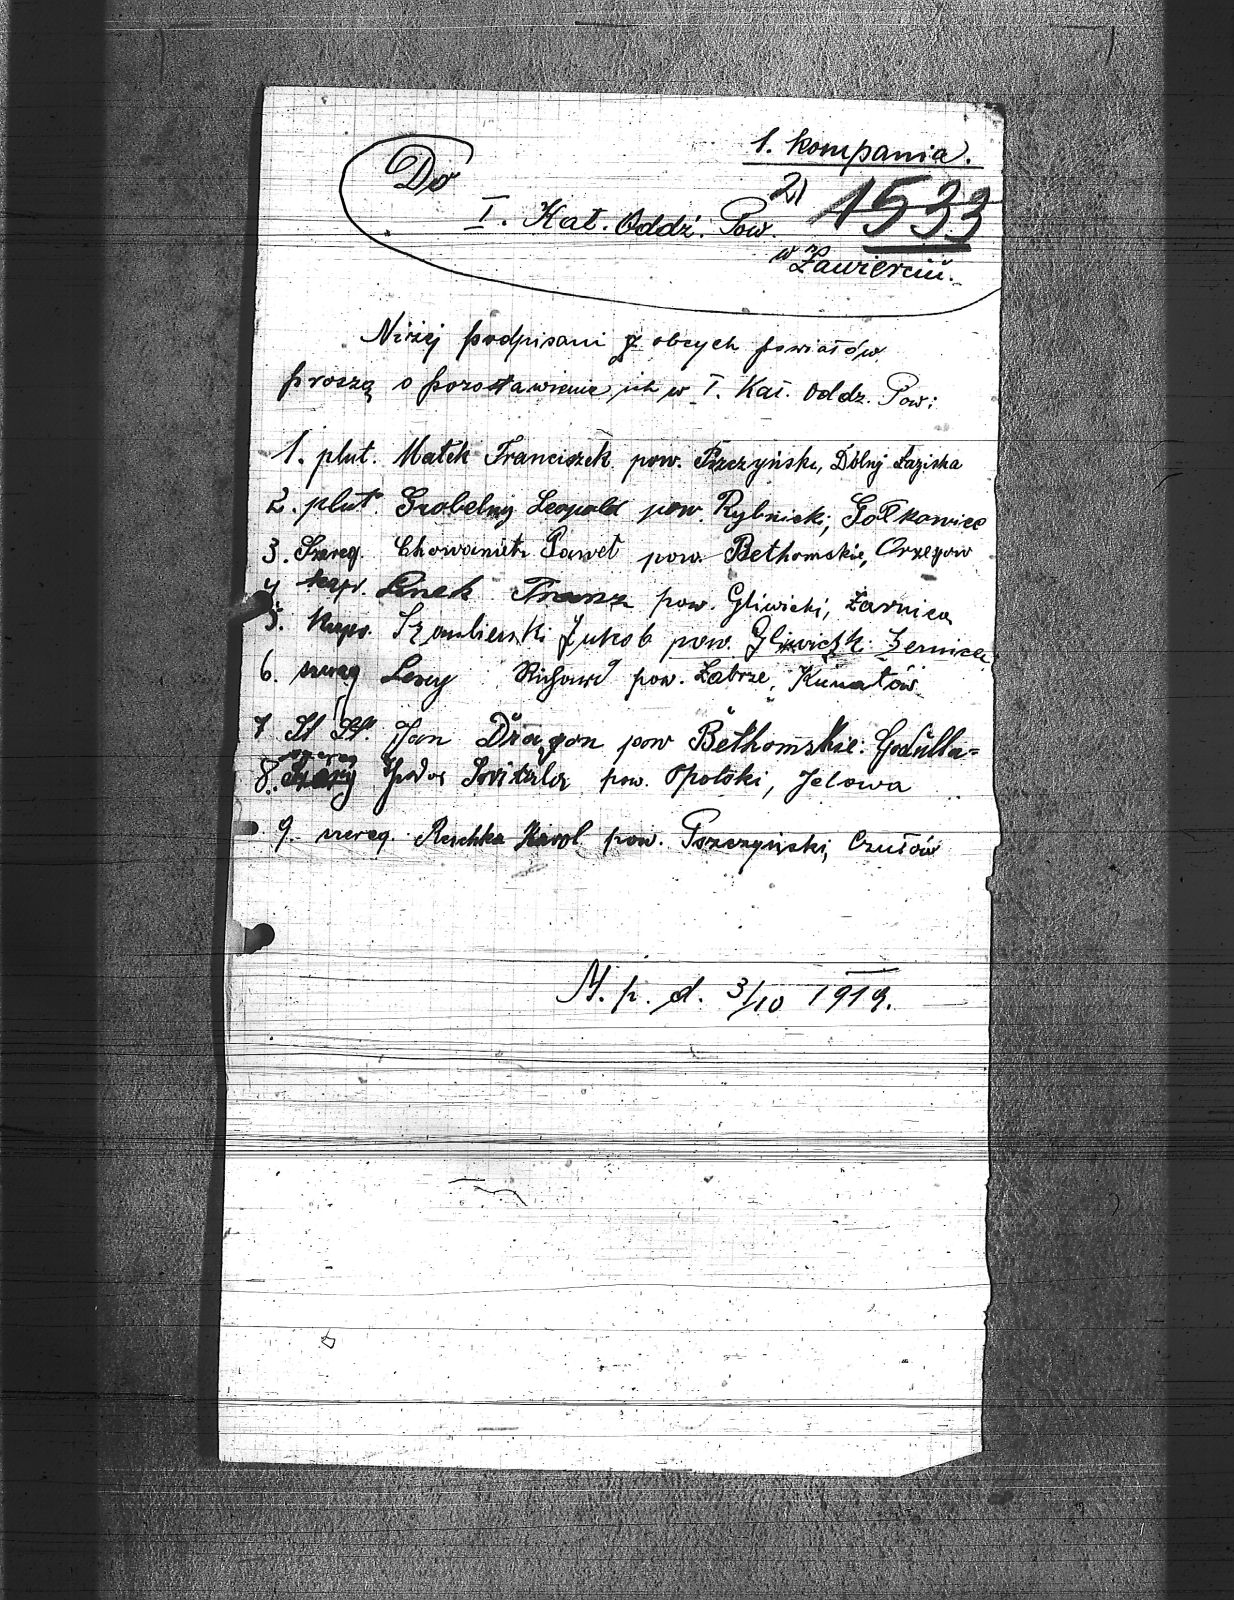 1. kompania.
Do
21 1533
I. Kat. Oddź. Pow.
w Zawierciu.
Niżej podpisani z obcych powiatów
proszą o pozostawienie ich w I. Kat. Oddz. Pow:
1. plut. Matek Franciszek pow. Pszczyński, Dolny Łaziska
2. plut. Grobelny Leopold pow. Rybnicki, Gołkowice
3. Szereg. Chowanietz Paweł pow. Bethomskie, Orzegow
4 kapr. Linek Franz pow. Gliwicki, Żarnica
5. Kapr. Szombierski Jakob pow. Gliwick. Żernica
6. szereg Richard pow. Zabrze, Kunatów
7 St. Jan Dragon pow Bethomskie. Godulla-
8. szereg pow. Opolski, Jelowa
9. szereg. Reschka Karol pow. Pszczyński, Czułów
M. p. d. 3/10 1919.